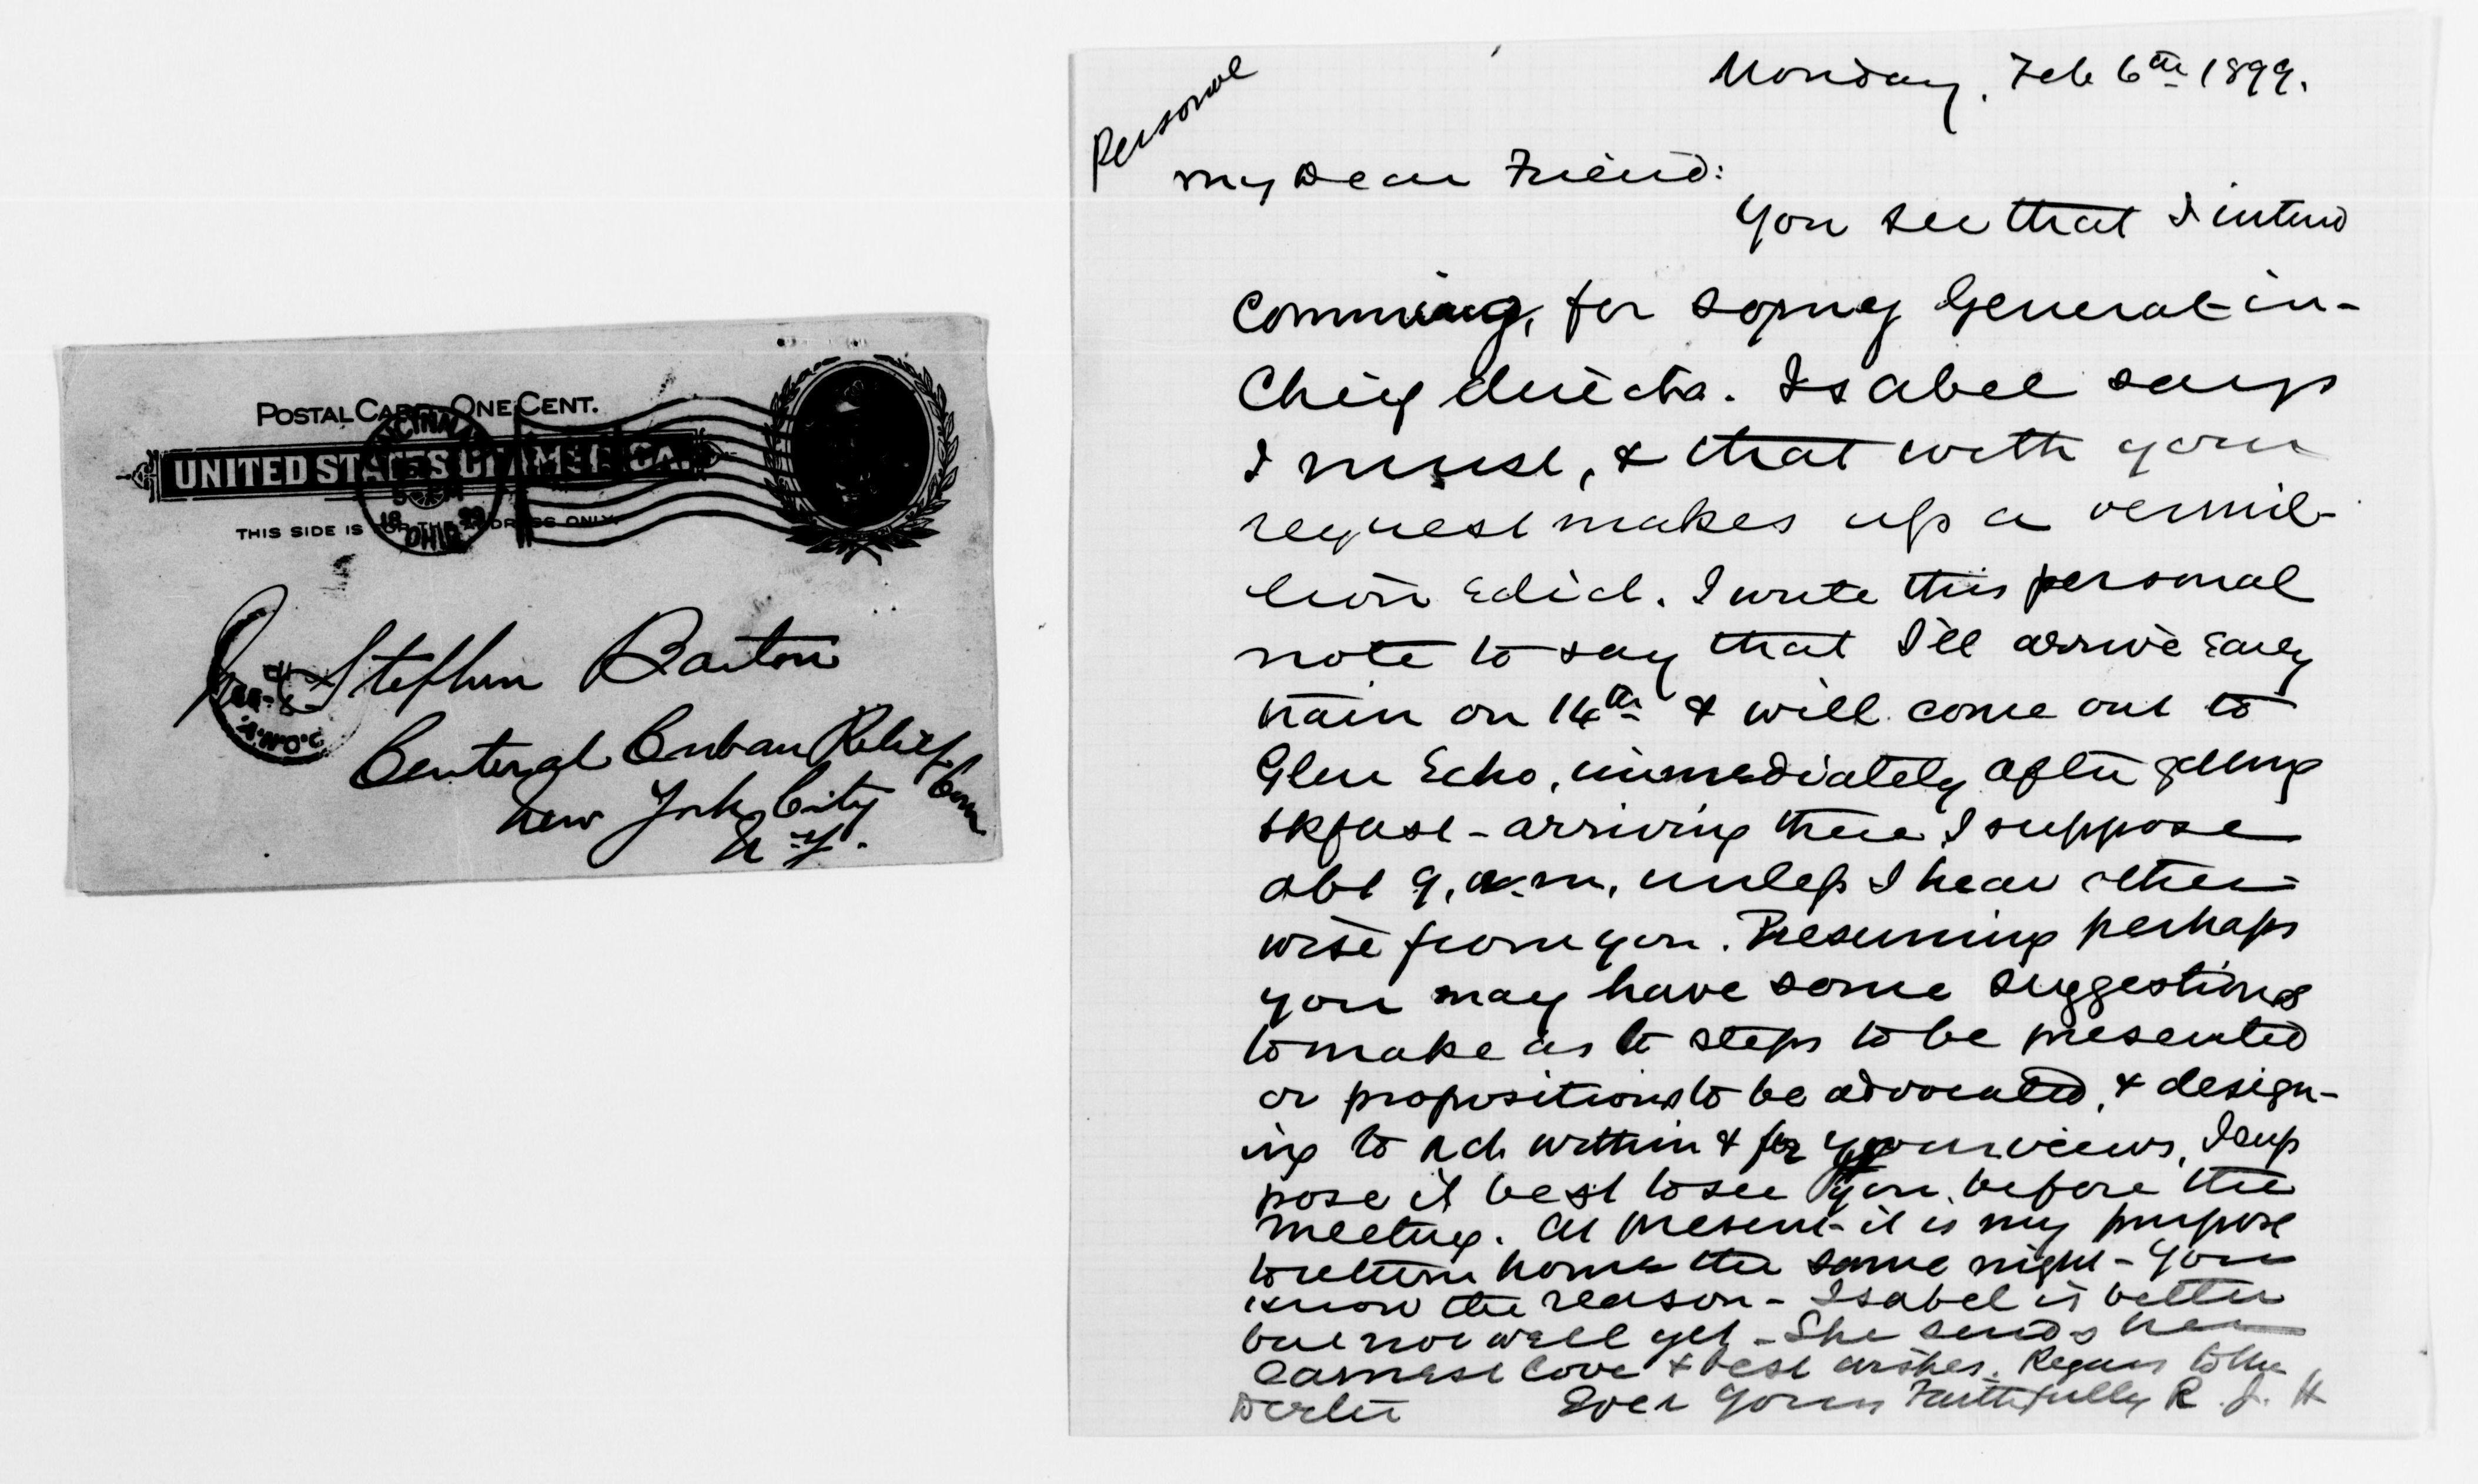 POSTAL CARD ONE CENT.
UNITED STATES OF AMERICA.
THIS SIDE IS FOR THE ADDRESS ONLY.
OHIO
Stephen Barton
Centeral Cuban Relief Com
New York City
N.Y.
Personal
Monday, Feb 6th 1899.
My Dear Friend:
You see that I intend
comming, for General-in-
Chief directs. Isabel says
I must, & that with your
request makes up a vermil-
lion Edict. I write this personal
note to say that I'll arrive Early
train on 14th & will come out to
Glen Echo, immediately after getting
bkfast - arriving there I suppose
abt 9, a.m, unless I hear other-
wise from you. Presuming perhaps
you may have some suggestions
to make as to steps to be presented
or propositions to be advocated, & design-
ing to act within & for your views, I sup
pose it best to see you before the
meeting. At present - it is my purpose
to return home the same night - you
know the reason - Isabel is better
but not well yet - She sends her
earnest love & best wishes. Regars to the
Ever yours Faithfully R. J. H